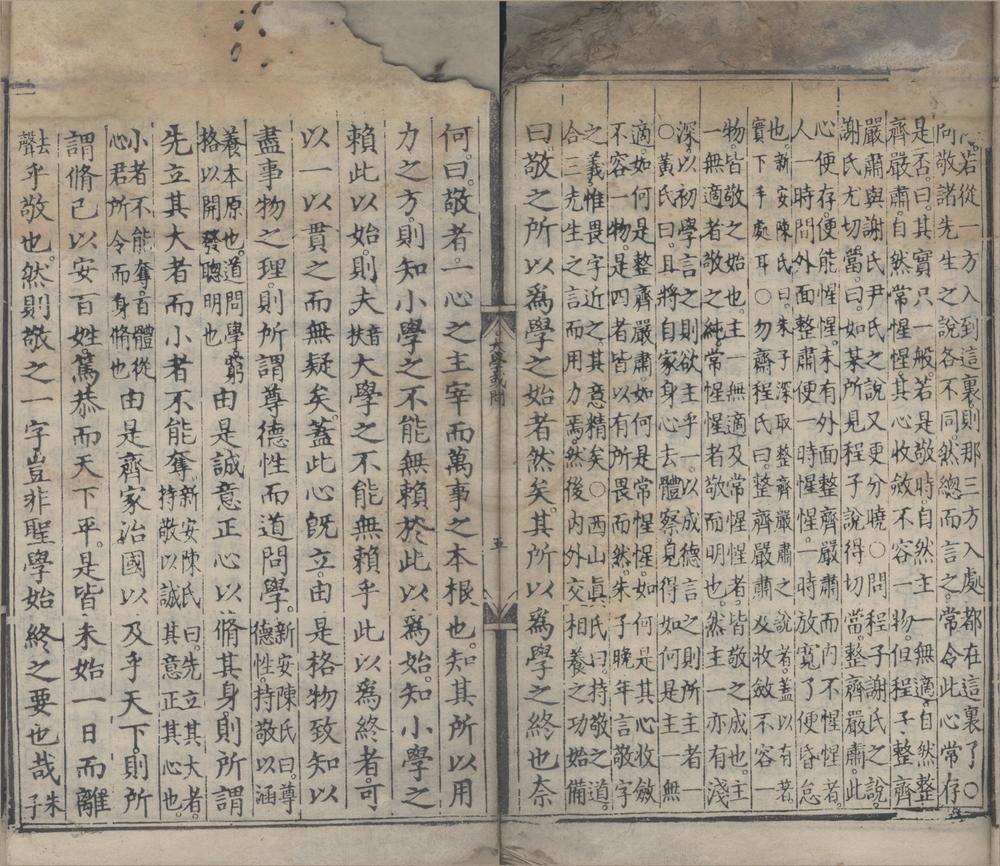 若從一方入到這裏則那三方入處都在這裏了○
問敬諸先生之說各不同然總而言之常令此心常存
是否曰其實只一般若是敬時自然主一無適自然整
齊嚴肅自然常惺惺其心收斂不容一物但程子整齊
嚴肅與謝氏尹氏之說又更分曉○問程子謝氏之說
謝氏尤切當曰如某所見程子說得切當整齊嚴肅此
心便存便能惺惺未有外面整齊嚴肅而內不惺惺者
人一時間外面整肅便一時惺一時放寬了便昏怠
也新安陳氏曰朱子深取整齊嚴肅之說者蓋以有著
實下手處耳○勿齋程氏曰整齊嚴肅及收斂不容一
物皆敬之始也主一無適及常惺惺者皆敬之成也主
一無適者敬之純常惺惺者敬而明也然主一亦有淺
深以初學言之則欲主乎一以成德言之則所主者一
○黃氏曰且將自家身心去體察見得如何是主一無
適如何是整齊嚴肅如何是常惺惺如何是其心收斂
不容一物是四者皆以有所畏而然朱子晚年言敬字
之義惟畏字近之其意精矣○西山眞氏曰持敬之道
合三先生之言而用力焉然後內外交相養之功始備
曰敬之所以爲學之始者然矣其所以爲學之終也奈
大學或問
五
何曰敬者一心之主宰而萬事之本根也知其所以用
力之方則知小學之不能無賴於此以爲始知小學之
賴此以始則夫音扶大學之不能無賴乎此以爲終者可
以一以貫之而無疑矣蓋此心旣立由是格物致知以
盡事物之理則所謂尊德性而道問學新安陳氏曰尊德性持敬以涵
養本原也道問學窮格以開發聰明也由是誠意正心以脩其身則所謂
先立其大者而小者不能奪新安陳氏曰先立其大者持敬以誠其意正其心也
小者不能奪音體從心君所令而身脩也由是齊家治國以及乎天下則所
謂脩己以安百姓篤恭而天下平是皆未始一日而離
去聲乎敬也然則敬之一字豈非聖學始終之要也哉朱子